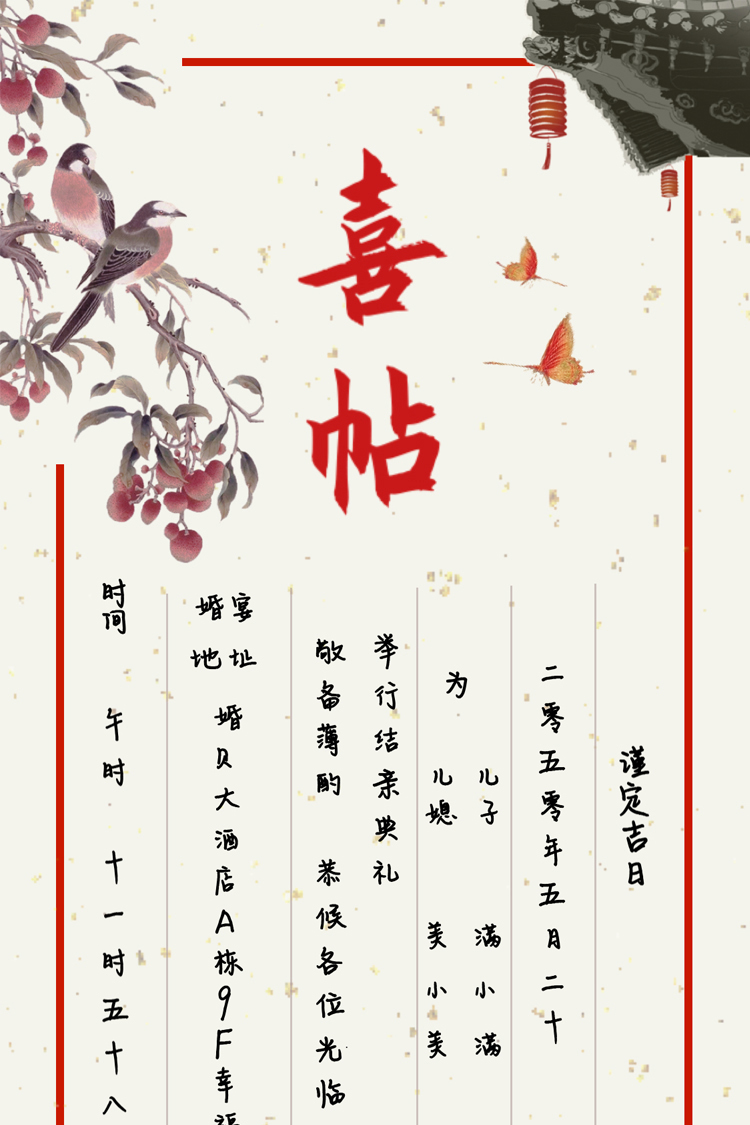 喜帖
谨定吉日
二零五零年五月二十
为 儿子 满小满
儿媳 美小美
举行结亲典礼
敬备薄酌 恭候各位光临
婚宴地址 婚贝大酒店A栋9F幸福
时间 午时 十一时五十八